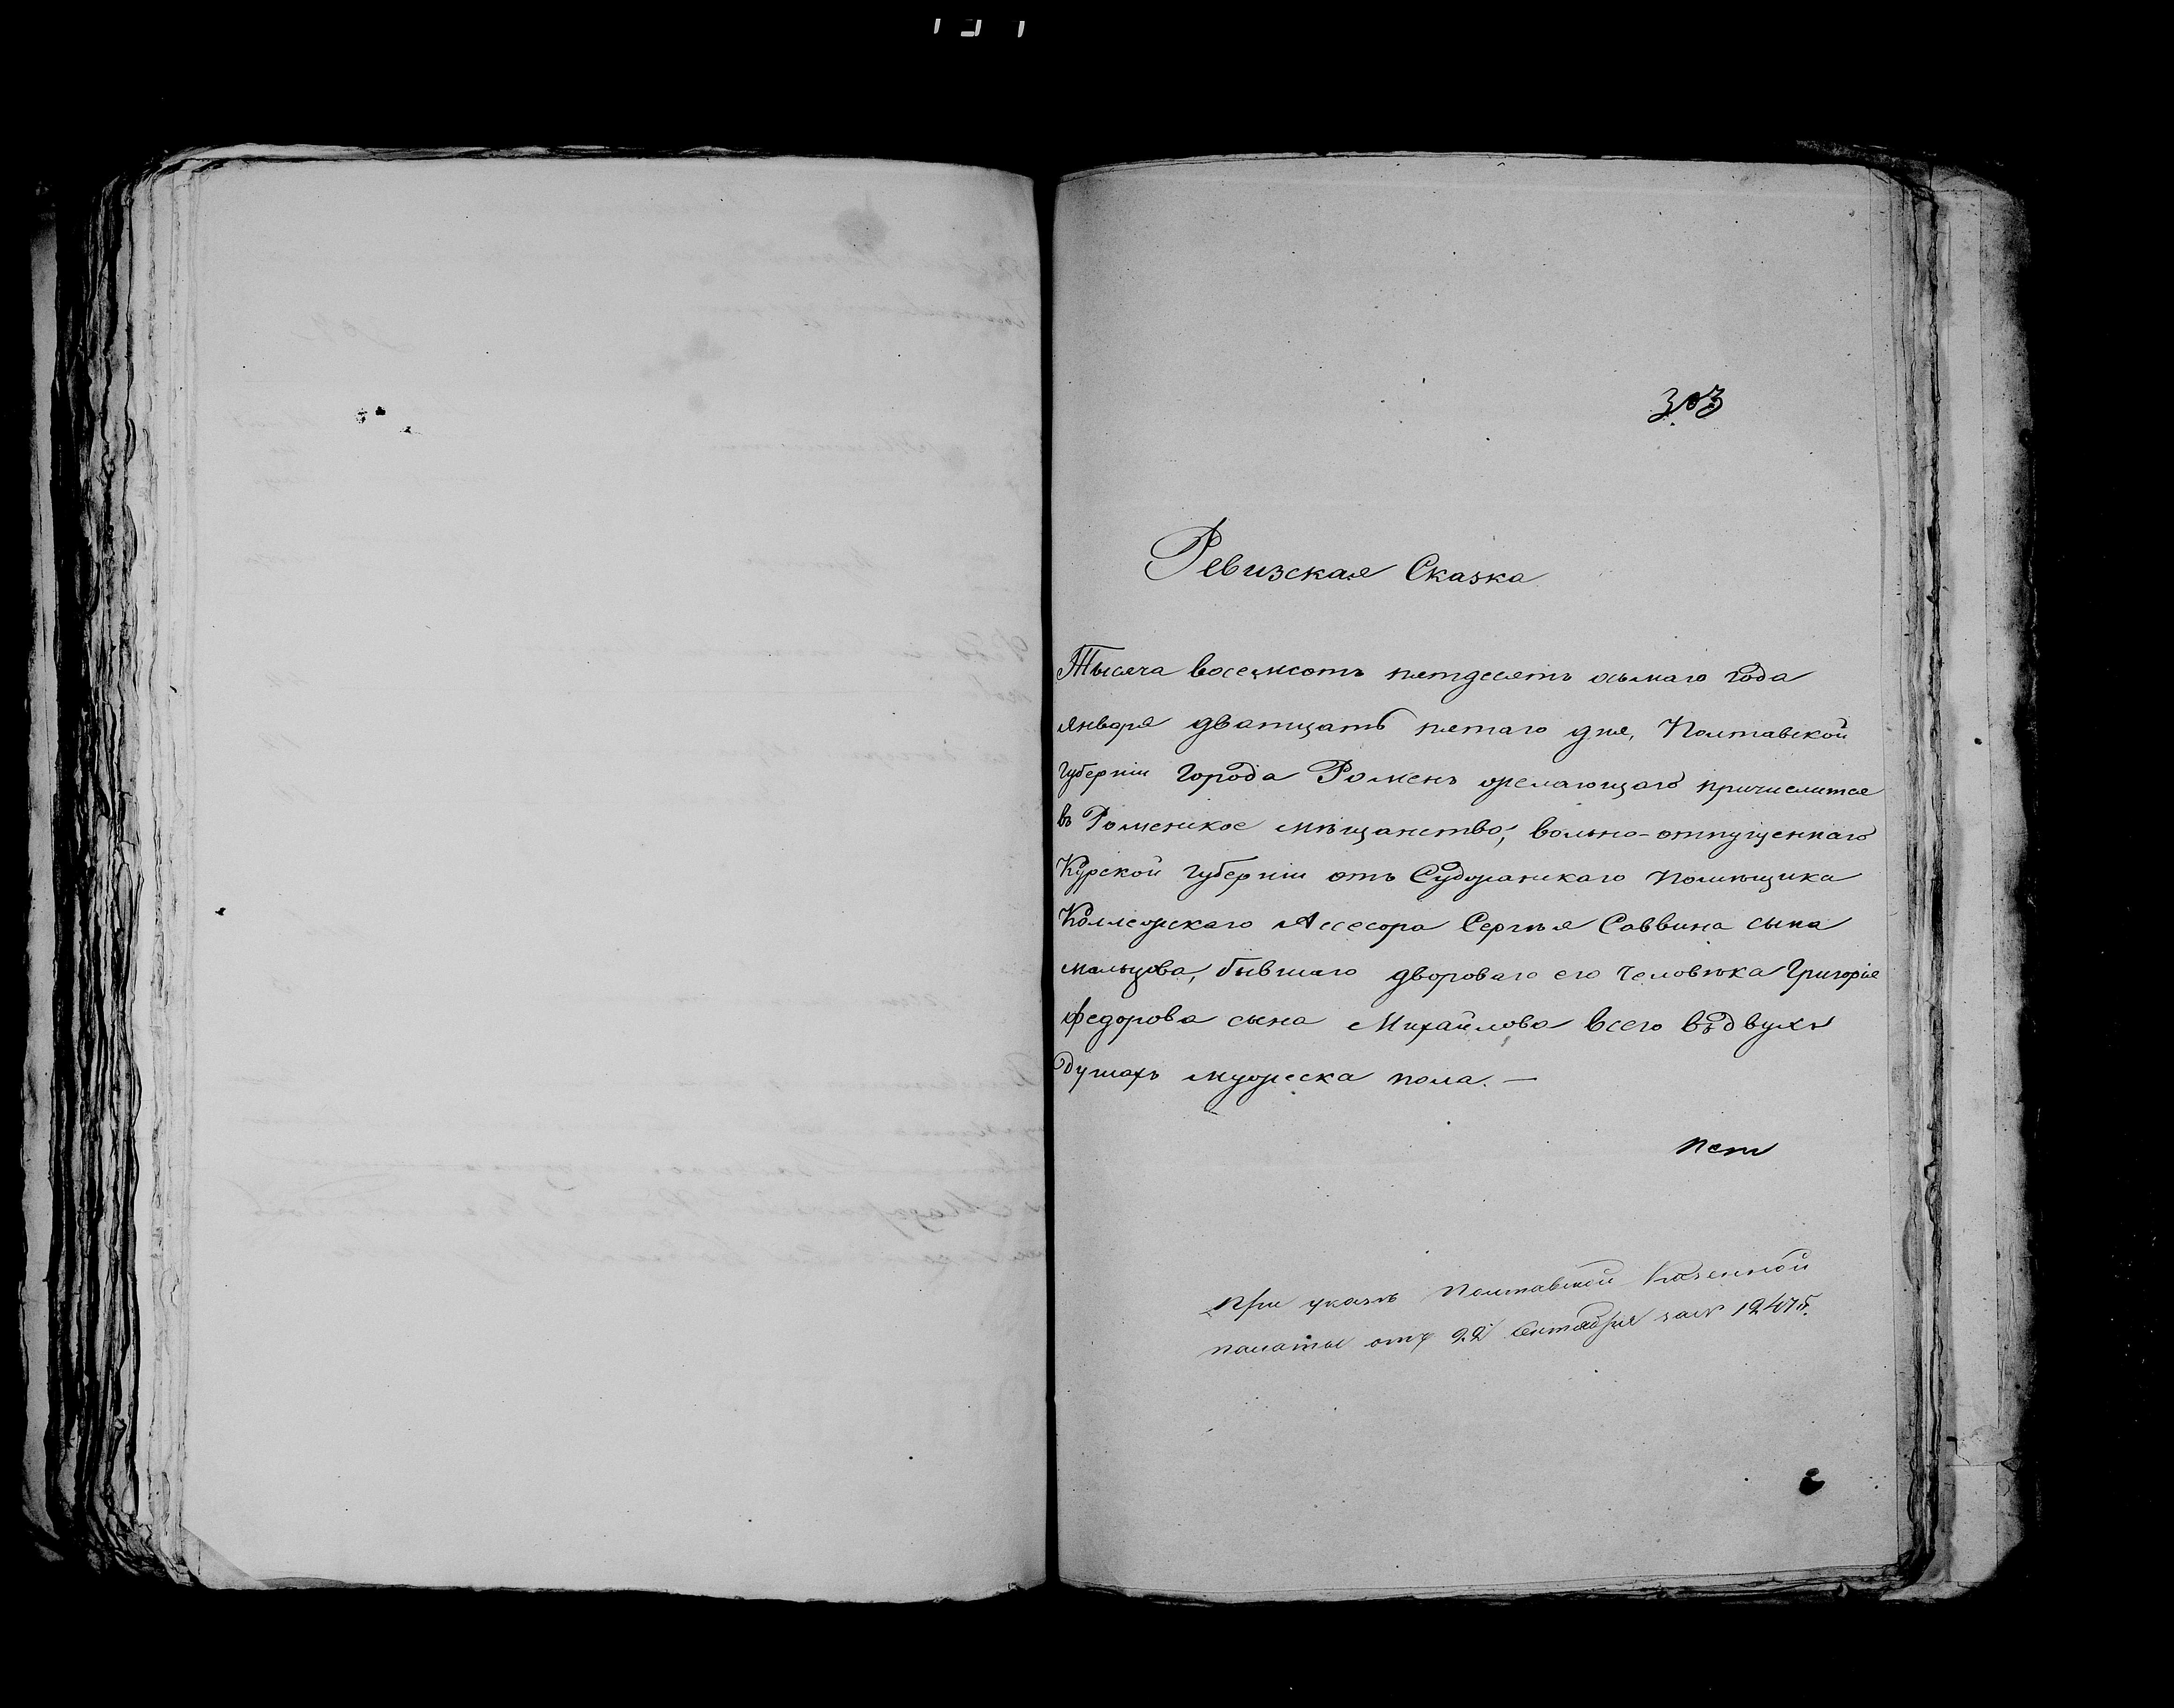 303
Ревизская Сказка
Тысяча восемсотъ пятдесятъ осьмаго года
января дватцать пятаго дня, Полтавской
губерніи города Роменъ желающаго причислится
въ Роменское мѣщанство, вольно-отпущеннаго
Курской губерніи отъ Суджанскаго помѣщика
Коллежскаго Ассесора Сергѣя Саввина сына
мальцова, бывшаго двороваго его человѣка Григорія
федорова сына Михайлова всего въ двухъ
душахъ мужеска пола. —
При указѣ Полтавской Казенной
палаты отъ 22 Сентября за №